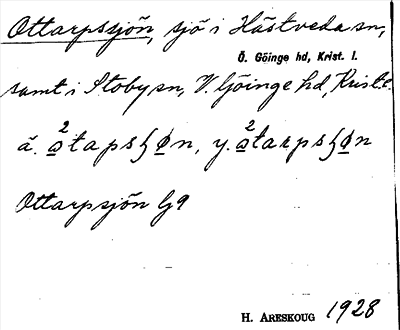 Ottarpssjön, sjö i Hästveda sn,
Ö. Göinge hd, Krist. l.
samt i Stoby sn, V. Göinge hd, Krist. l.
ä. ²ɑtapsʃøn, y. ²ɑtarpsʃøn
Ottarpsjön G9
H. ARESKOUG 1928